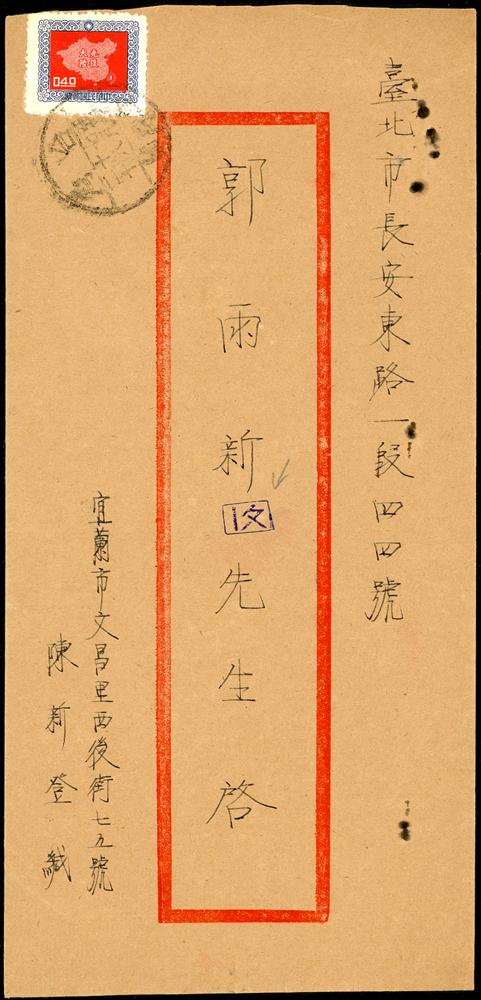 臺北市長安東路一段四四號
郭雨新先生啓
宜蘭市文昌里西後街七五號
陳新登緘
光復
大陸
040